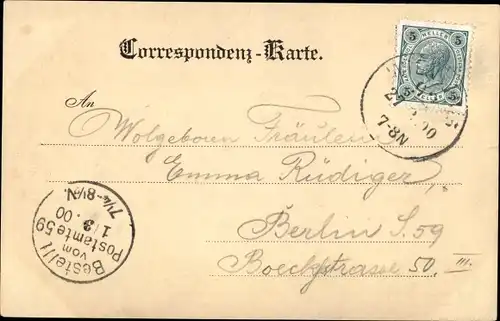 Correspondenz-Karte.
5 HELLER 5
27
7-8N
An
Wolgeboren Fräulein
Emma Rüdiger,
Berlin S. 59
Boeckhstrasse 50, III.
Bestellt
vom
Postamte 59
1/3.00
7¼-8½N.